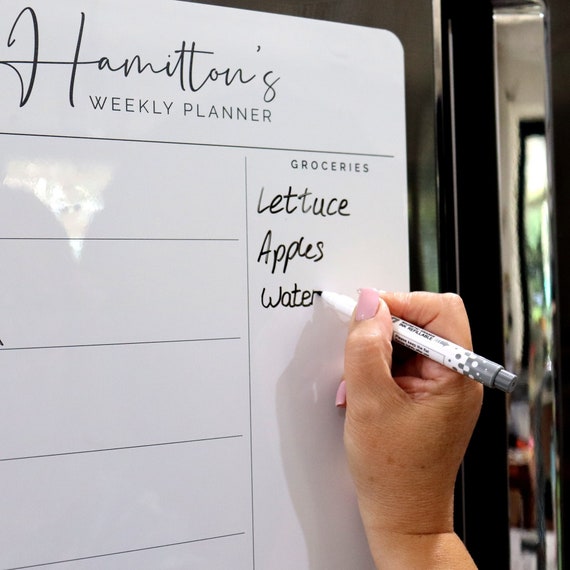 Hamilton's
WEEKLY PLANNER
GROCERIES
Lettuce
Apples
Water